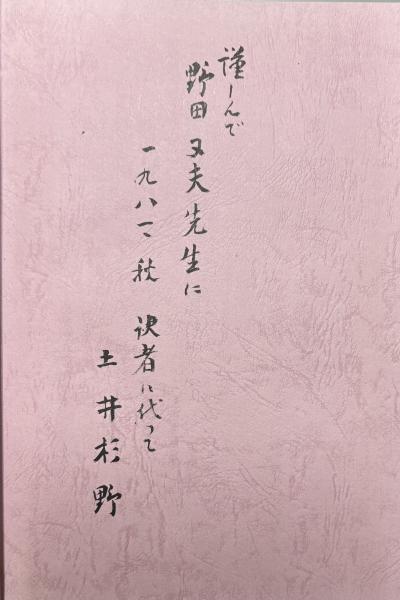 謹しんで
野田又夫先生に
一九八一、秋 訳者に代って
土井杉野